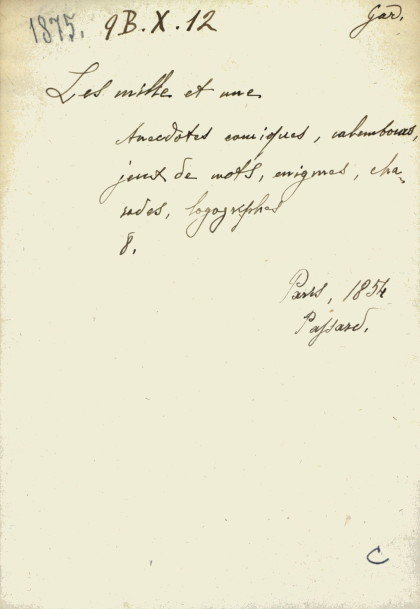 1875. 9B.X.12 Gar.
Les mille et une
Anecdotes comiques, calembours,
jeux de mots, enigmes, cha-
rades, logogryphes
8.
Paris, 1854
Passard.
C